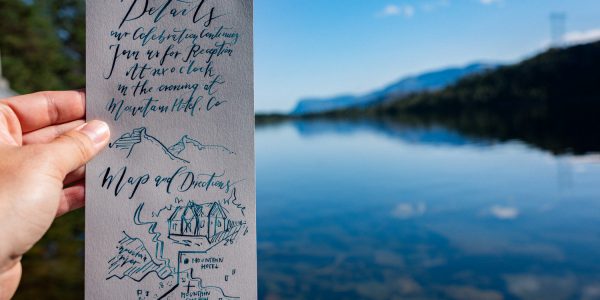 Details
our Celebration Continues
Join us for Reception
At six o'clock
in the evening at
Mountain Hotel, Co
Map and Directions
MOUNTAIN
HOTEL
MOUNTAIN